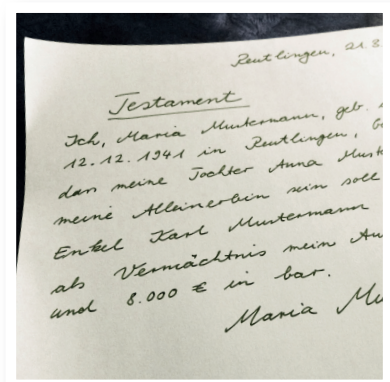 Reutlingen, 21.8
Testament
Ich, Maria Mustermann, geb.
12.12.1941 in Reutlingen,
dass meine Tochter Anna Must
meine Alleinerbin sein soll
Enkel Karl Mustermann
als Vermächtnis mein Au
und 8.000 € in bar.
Maria Mu